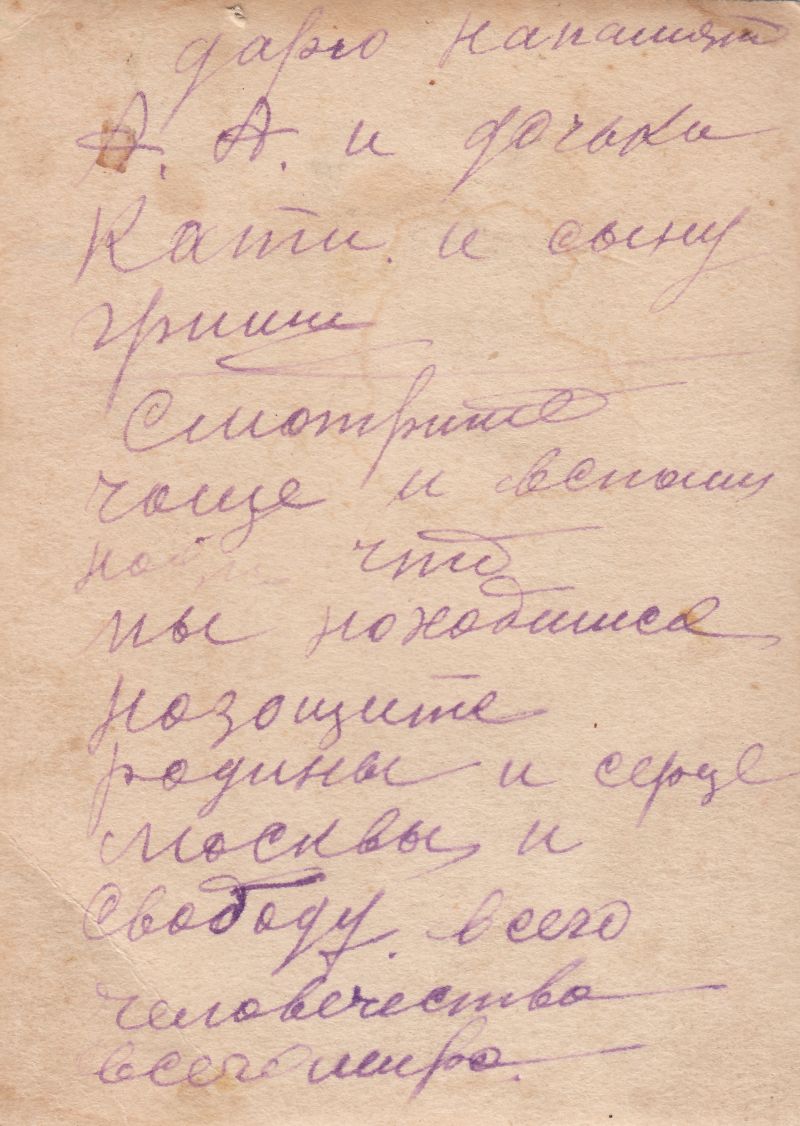 дарю напамят
А. А. и дочьки
Кати. и сыну
гриши
Смотрите
чаще и вспоми
найте что
мы находимися
назощите
родины и серце
Москвы и
Свободу. всего
человечества
всего мира.